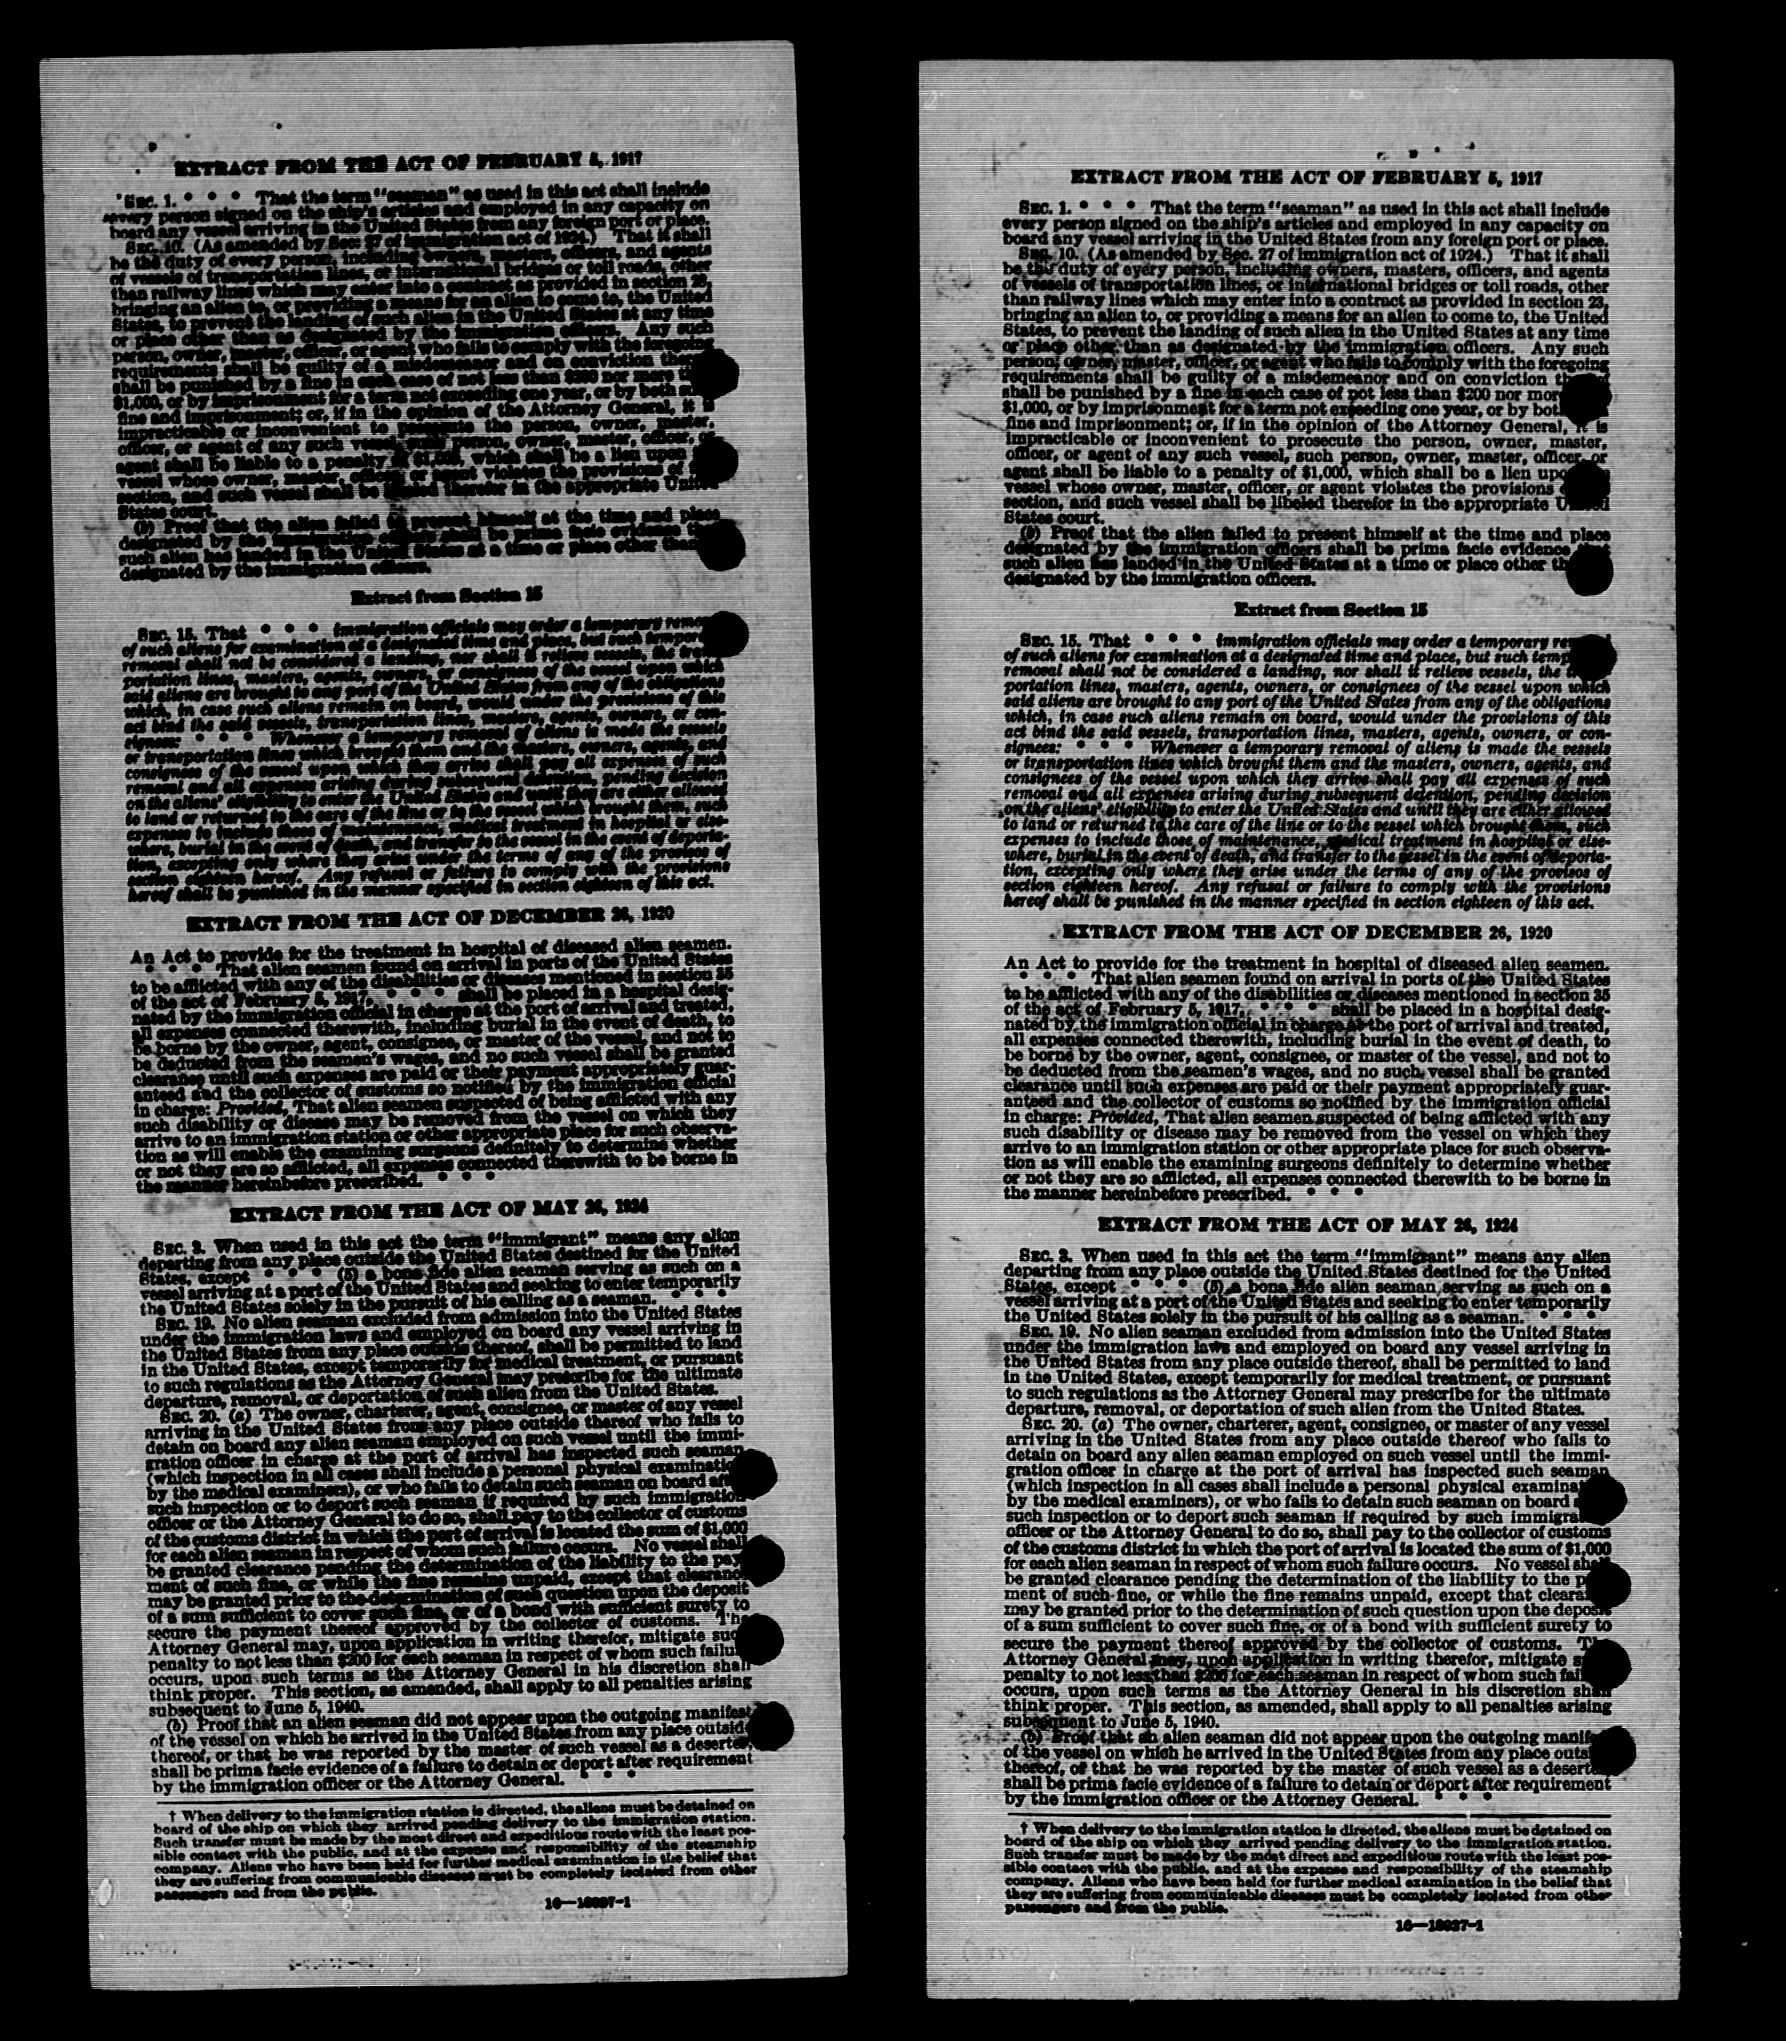 EXTRACT FROM THE ACT OF FEBRUARY 5, 1917
SEC. 1. * * * That the term "seaman" as used in this act shall include
every person signed on the ship's articles and employed in any capacity on
board any vessel arriving in the United States from any foreign port or place.
SEC. 10. (As amended by Sec. 27 of immigration act of 1924.) That it shall
be the duty of every person, including owners, masters, officers, and agents
of vessels of transportation lines, or international bridges or toll roads, other
than railway lines which may enter into a contract as provided in section 23,
bringing an alien to, or providing a means for an alien to come to, the United
States, to prevent the landing of such alien in the United States at any time
or place other than as designated by the immigration officers. Any such
person, owner, master, officer, or agent who fails to comply with the foregoing
requirements shall be guilty of a misdemeanor and on conviction
shall be punished by a fine in each case of not less than $200 nor more
$1,000, or by imprisonment for a term not exceeding one year, or by both
fine and imprisonment; or, if in the opinion of the Attorney General, it is
impracticable or inconvenient to prosecute the person, owner, master,
officer, or agent of any such vessel, such person, owner, master, officer, or
agent shall be liable to a penalty of $1,000, which shall be a lien upon
vessel whose owner, master, officer, or agent violates the provisions of
section, and such vessel shall be libeled therefor in the appropriate United
States court.
(b) Proof that the alien failed to present himself at the time and place
designated by the immigration officers shall be prima facie evidence
such alien has landed in the United States at a time or place other than
designated by the immigration officers.
Extract from Section 15
SEC. 15. That * * * immigration officials may order a temporary
of such aliens for examination at a designated time and place, but such
removal shall not be considered a landing, nor shall it relieve vessels, the
portation lines, masters, agents, owners, or consignees of the vessel upon which
said aliens are brought to any port of the United States from any of the obligations
which, in case such aliens remain on board, would under the provisions of this
act bind the said vessels, transportation lines, masters, agents, owners, or con-
signees: * * * Whenever a temporary removal of aliens is made the vessels
or transportation lines which brought them and the masters, owners, agents, and
consignees of the vessel upon which they arrive shall pay all expenses of such
removal and all expenses arising during subsequent detention, pending decision
on the aliens' eligibility to enter the United States and until they are either allowed
to land or returned to the care of the line or to the vessel which brought them, such
expenses to include those of maintenance, medical treatment in hospital or else-
where, burial in the event of death, and transfer to the vessel in the event of deporta-
tion, excepting only where they arise under the terms of any of the provisos of
section eighteen hereof. Any refusal or failure to comply with the provisions
hereof shall be punished in the manner specified in section eighteen of this act.
EXTRACT FROM THE ACT OF DECEMBER 26, 1920
An Act to provide for the treatment in hospital of diseased alien seamen.
* * * That alien seamen found on arrival in ports of the United States
to be afflicted with any of the disabilities or diseases mentioned in section 35
of the act of February 5, 1917, * * * shall be placed in a hospital desig-
nated by the immigration official in charge at the port of arrival and treated,
all expenses connected therewith, including burial in the event of death, to
be borne by the owner, agent, consignee, or master of the vessel, and not to
be deducted from the seamen's wages, and no such vessel shall be granted
clearance until such expenses are paid or their payment appropriately guar-
anteed and the collector of customs so notified by the immigration official
in charge: Provided, That alien seamen suspected of being afflicted with any
such disability or disease may be removed from the vessel on which they
arrive to an immigration station or other appropriate place for such observa-
tion as will enable the examining surgeons definitely to determine whether
or not they are so afflicted, all expenses connected therewith to be borne in
the manner hereinbefore prescribed. * * *
EXTRACT FROM THE ACT OF MAY 26, 1924
SEC. 3. When used in this act the term "immigrant" means any alien
departing from any place outside the United States destined for the United
States, except * * * (5) a bona fide alien seaman serving as such on a
vessel arriving at a port of the United States and seeking to enter temporarily
the United States solely in the pursuit of his calling as a seaman. * * *
SEC. 19. No alien seaman excluded from admission into the United States
under the immigration laws and employed on board any vessel arriving in
the United States from any place outside thereof, shall be permitted to land
in the United States, except temporarily for medical treatment, or pursuant
to such regulations as the Attorney General may prescribe for the ultimate
departure, removal, or deportation of such alien from the United States.
SEC. 20. (a) The owner, charterer, agent, consignee, or master of any vessel
arriving in the United States from any place outside thereof who fails to
detain on board any alien seaman employed on such vessel until the immi-
gration officer in charge at the port of arrival has inspected such seaman
(which inspection in all cases shall include a personal physical examination
by the medical examiners), or who fails to detain such seaman on board after
such inspection or to deport such seaman if required by such immigration
officer or the Attorney General to do so, shall pay to the collector of customs
of the customs district in which the port of arrival is located the sum of $1,000
for each alien seaman in respect of whom such failure occurs. No vessel shall
be granted clearance pending the determination of the liability to the pay-
ment of such fine, or while the fine remains unpaid, except that clearance
may be granted prior to the determination of such question upon the deposit
of a sum sufficient to cover such fine, or of a bond with sufficient surety to
secure the payment thereof approved by the collector of customs. The
Attorney General may, upon application in writing therefor, mitigate such
penalty to not less than $200 for each seaman in respect of whom such failure
occurs, upon such terms as the Attorney General in his discretion shall
think proper. This section, as amended, shall apply to all penalties arising
subsequent to June 5, 1940.
(b) Proof that an alien seaman did not appear upon the outgoing manifest
of the vessel on which he arrived in the United States from any place outside
thereof, or that he was reported by the master of such vessel as a deserter,
shall be prima facie evidence of a failure to detain or deport after requirement
by the immigration officer or the Attorney General. * * *
† When delivery to the immigration station is directed, the aliens must be detained on
board of the ship on which they arrived pending delivery to the immigration station.
Such transfer must be made by the most direct and expeditious route with the least pos-
sible contact with the public, and at the expense and responsibility of the steamship
company. Aliens who have been held for further medical examination in the belief that
they are suffering from communicable diseases must be completely isolated from other
passengers and from the public.
16—18037-1
EXTRACT FROM THE ACT OF FEBRUARY 5, 1917
SEC. 1. * * * That the term "seaman" as used in this act shall include
every person signed on the ship's articles and employed in any capacity on
board any vessel arriving in the United States from any foreign port or place.
SEC. 10. (As amended by Sec. 27 of immigration act of 1924.) That it shall
be the duty of every person, including owners, masters, officers, and agents
of vessels of transportation lines, or international bridges or toll roads, other
than railway lines which may enter into a contract as provided in section 23,
bringing an alien to, or providing a means for an alien to come to, the United
States, to prevent the landing of such alien in the United States at any time
or place other than as designated by the immigration officers. Any such
person, owner, master, officer, or agent who fails to comply with the foregoing
requirements shall be guilty of a misdemeanor and on conviction
shall be punished by a fine in each case of not less than $200 nor more
$1,000, or by imprisonment for a term not exceeding one year, or by both
fine and imprisonment; or, if in the opinion of the Attorney General, it is
impracticable or inconvenient to prosecute the person, owner, master,
officer, or agent of any such vessel, such person, owner, master, officer, or
agent shall be liable to a penalty of $1,000, which shall be a lien upon
vessel whose owner, master, officer, or agent violates the provisions
section, and such vessel shall be libeled therefor in the appropriate United
States court.
(b) Proof that the alien failed to present himself at the time and place
designated by the immigration officers shall be prima facie evidence that
such alien has landed in the United States at a time or place other
designated by the immigration officers.
Extract from Section 15
SEC. 15. That * * * immigration officials may order a temporary
of such aliens for examination at a designated time and place, but such
removal shall not be considered a landing, nor shall it relieve vessels, the
portation lines, masters, agents, owners, or consignees of the vessel upon which
said aliens are brought to any port of the United States from any of the obligations
which, in case such aliens remain on board, would under the provisions of this
act bind the said vessels, transportation lines, masters, agents, owners, or con-
signees: * * * Whenever a temporary removal of aliens is made the vessels
or transportation lines which brought them and the masters, owners, agents, and
consignees of the vessel upon which they arrive shall pay all expenses of such
removal and all expenses arising during subsequent detention, pending decision
on the aliens' eligibility to enter the United States and until they are either allowed
to land or returned to the care of the line or to the vessel which brought them, such
expenses to include those of maintenance, medical treatment in hospital or else-
where, burial in the event of death, and transfer to the vessel in the event of deporta-
tion, excepting only where they arise under the terms of any of the provisos of
section eighteen hereof. Any refusal or failure to comply with the provisions
hereof shall be punished in the manner specified in section eighteen of this act.
EXTRACT FROM THE ACT OF DECEMBER 26, 1920
An Act to provide for the treatment in hospital of diseased alien seamen.
* * * That alien seamen found on arrival in ports of the United States
to be afflicted with any of the disabilities or diseases mentioned in section 35
of the act of February 5, 1917, * * * shall be placed in a hospital desig-
nated by the immigration official in charge at the port of arrival and treated,
all expenses connected therewith, including burial in the event of death, to
be borne by the owner, agent, consignee, or master of the vessel, and not to
be deducted from the seamen's wages, and no such vessel shall be granted
clearance until such expenses are paid or their payment appropriately guar-
anteed and the collector of customs so notified by the immigration official
in charge: Provided, That alien seamen suspected of being afflicted with any
such disability or disease may be removed from the vessel on which they
arrive to an immigration station or other appropriate place for such observa-
tion as will enable the examining surgeons definitely to determine whether
or not they are so afflicted, all expenses connected therewith to be borne in
the manner hereinbefore prescribed. * * *
EXTRACT FROM THE ACT OF MAY 26, 1924
SEC. 3. When used in this act the term "immigrant" means any alien
departing from any place outside the United States destined for the United
States, except * * * (5) a bona fide alien seaman serving as such on a
vessel arriving at a port of the United States and seeking to enter temporarily
the United States solely in the pursuit of his calling as a seaman. * * *
SEC. 19. No alien seaman excluded from admission into the United States
under the immigration laws and employed on board any vessel arriving in
the United States from any place outside thereof, shall be permitted to land
in the United States, except temporarily for medical treatment, or pursuant
to such regulations as the Attorney General may prescribe for the ultimate
departure, removal, or deportation of such alien from the United States.
SEC. 20. (a) The owner, charterer, agent, consignee, or master of any vessel
arriving in the United States from any place outside thereof who fails to
detain on board any alien seaman employed on such vessel until the immi-
gration officer in charge at the port of arrival has inspected such seaman
(which inspection in all cases shall include a personal physical
by the medical examiners), or who fails to detain such seaman on board
such inspection or to deport such seaman if required by such
officer or the Attorney General to do so, shall pay to the collector of customs
of the customs district in which the port of arrival is located the sum of $1,000
for each alien seaman in respect of whom such failure occurs. No vessel shall
be granted clearance pending the determination of the liability to the
ment of such fine, or while the fine remains unpaid, except that
may be granted prior to the determination of such question upon the deposit
of a sum sufficient to cover such fine, or of a bond with sufficient surety to
secure the payment thereof approved by the collector of customs. The
Attorney General may, upon application in writing therefor, mitigate
penalty to not less than $200 for each seaman in respect of whom such
occurs, upon such terms as the Attorney General in his discretion shall
think proper. This section, as amended, shall apply to all penalties arising
subsequent to June 5, 1940.
(b) Proof that an alien seaman did not appear upon the outgoing
of the vessel on which he arrived in the United States from any place
thereof, or that he was reported by the master of such vessel as a
shall be prima facie evidence of a failure to detain or deport after requirement
by the immigration officer or the Attorney General. * * *
† When delivery to the immigration station is directed, the aliens must be detained on
board of the ship on which they arrived pending delivery to the immigration station.
Such transfer must be made by the most direct and expeditious route with the least pos-
sible contact with the public, and at the expense and responsibility of the steamship
company. Aliens who have been held for further medical examination in the belief that
they are suffering from communicable diseases must be completely isolated from other
passengers and from the public.
16—18037-1